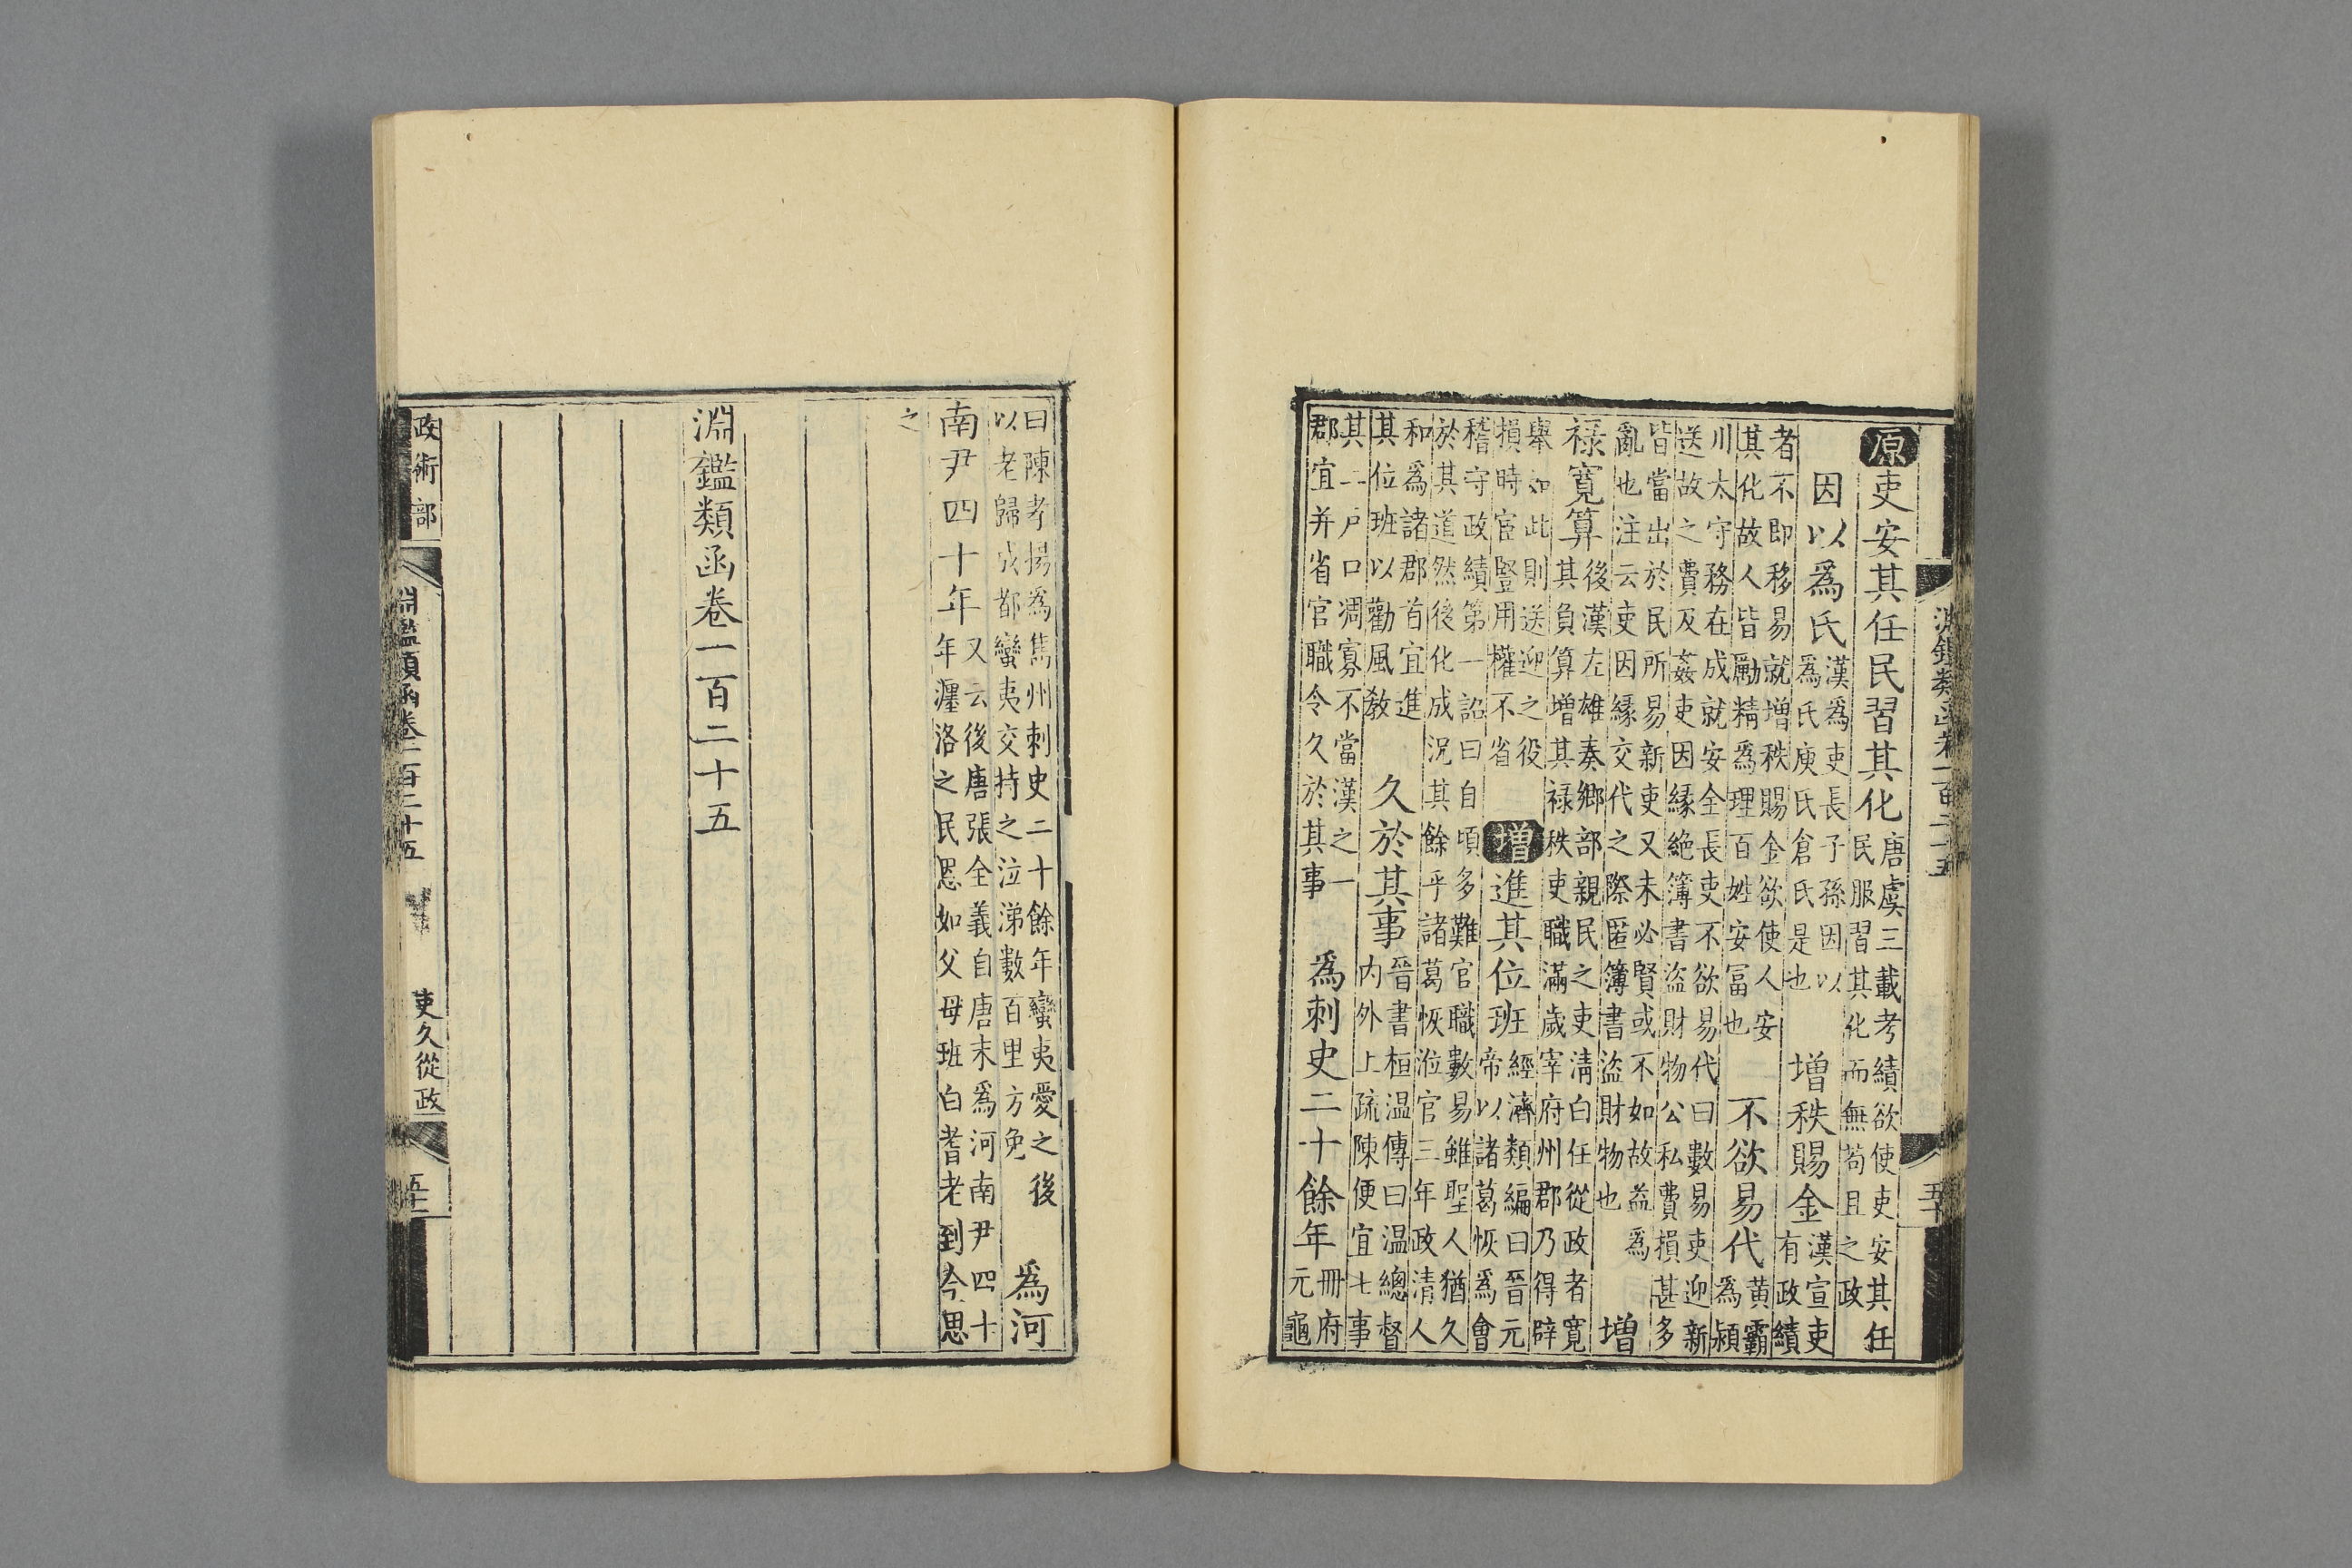 淵鑑類函卷一百二十五 五十
原吏安其任民習其化唐虞三載考績欲使吏安其任
民服習其化而無苟且之政
因以爲氏漢爲吏長子孫因以
爲氏庾氏倉氏是也增秩賜金漢宣吏
有政績
者不即移易就增秩賜金欲使人安
其化故人皆勵精爲理百姓安冨也不欲易代黄霸
爲潁
川太守務在成就安全長吏不欲易代曰數易吏迎新
送故之費及姦吏因縁絶簿書盜財物公私費損甚多
皆當出於民所易新吏又未必賢或不如故益爲
亂也注云吏因縁交代之際匿簿書盜財物也增
禄寛算後漢左雄奏鄉部親民之吏清白任從政者寛
其負算增其禄秩吏職滿歲宰府州郡乃得辟
舉如此則送迎之役
損時宦豎用權不省增進其位班經濟類編曰晉元
帝以諸葛恢爲會
稽守政績第一詔曰自頃多難官職數易雖聖人猶久
於其道然後化成況其餘乎諸葛恢涖官三年政清人
和爲諸郡首宜進
其位班以勸風教久於其事晉書桓温傳曰温總督
内外上疏陳便宜七事
其二戸口凋寡不當漢之一
郡宜并省官職令久於其事爲刺史二十餘年冊府
元龜
曰陳孝揚爲雋州刺史二十餘年蠻夷愛之後
以老歸成都蠻夷交持之泣涕數百里方免爲河
南尹四十年又云後唐張全義自唐末爲河南尹四十
年瀍洛之民如父母班白耆老到今思
之
淵鑑類函卷一百二十五
政術部 淵鑑類函卷一百二十五 吏久從政 五十一